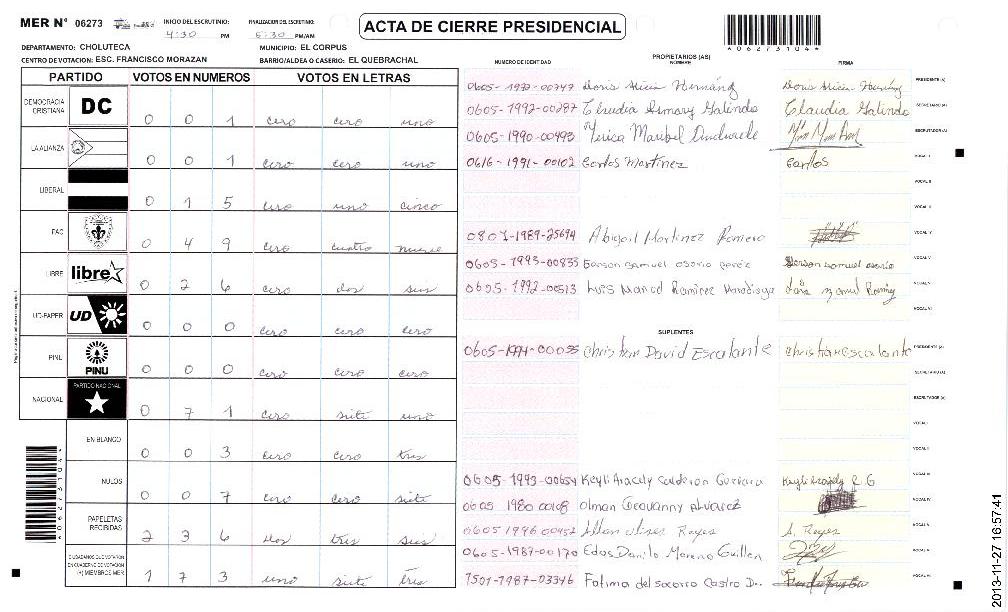 MER N° 06273
INICIO DEL ESCRUTINIO:
4:30 PM
FINALIZACION DEL ESCRUTINIO:
6:30 PM/AM
ACTA DE CIERRE PRESIDENCIAL
062731044
DEPARTAMENTO: CHOLUTECA
MUNICIPIO: EL CORPUS
CENTRO DE VOTACION: ESC. FRANCISCO MORAZAN
BARRIO/ALDEA O CASERIO: EL QUEBRACHAL
PARTIDO VOTOS EN NUMEROS VOTOS EN LETRAS
DEMOCRACIA CRISTIANA DC 0 0 1 cero cero uno
LA ALIANZA 0 0 1 cero cero uno
LIBERAL 0 1 5 cero uno cinco
PAC 0 4 9 cero cuatro nueve
LIBRE libre 0 2 6 cero dos seis
UD-FAPER UD 0 0 0 cero cero cero
PINU PINU 0 0 0 cero cero cero
NACIONAL PARTIDO NACIONAL 0 7 1 cero siete uno
EN BLANCO 0 0 3 cero cero tres
NULOS 0 0 7 cero cero siete
PAPELETAS RECIBIDAS 2 3 6 dos tres seis
CIUDADANOS QUE VOTARON EN CUADERNO DE VOTACION (+) MIEMBROS MER 1 7 3 uno siete tres
062731044
NUMERO DE IDENTIDAD
PROPIETARIOS (AS)
NOMBRE
FIRMA
Doris Alicia Hernández PRESIDENTE (A)
0605-1992-00287 Claudia Galindo SECRETARIO (A)
0605-1990-00493 Maribel Andrade ESCRUTADOR (A)
0616-1991-00102 Carlos Martinez Carlos VOCAL I
VOCAL II
VOCAL III
0801-1989-25694 Abigail Martinez Romero VOCAL IV
0605-1993-00835 Gerson Samuel Osorio VOCAL V
0605-1992-00513 Luis Manuel Ramirez
VOCAL VI
SUPLENTES
Christian David Escalante Christian Escalante PRESIDENTE (A)
SECRETARIO (A)
ESCRUTADOR (A)
VOCAL I
VOCAL II
0605-1993-00654 Keyli Aracely Calderon Guevara VOCAL III
0605 1980 00108 Olman Geovanny Alvarez VOCAL IV
0605 1996 00452 Reyes A. Reyes VOCAL V
0605-1987-00170 Danilo Moreno Guillen
1501-1987-03346 Fatima del Socorro Castro D.. VOCAL VI
2013-11-27 16:57:41